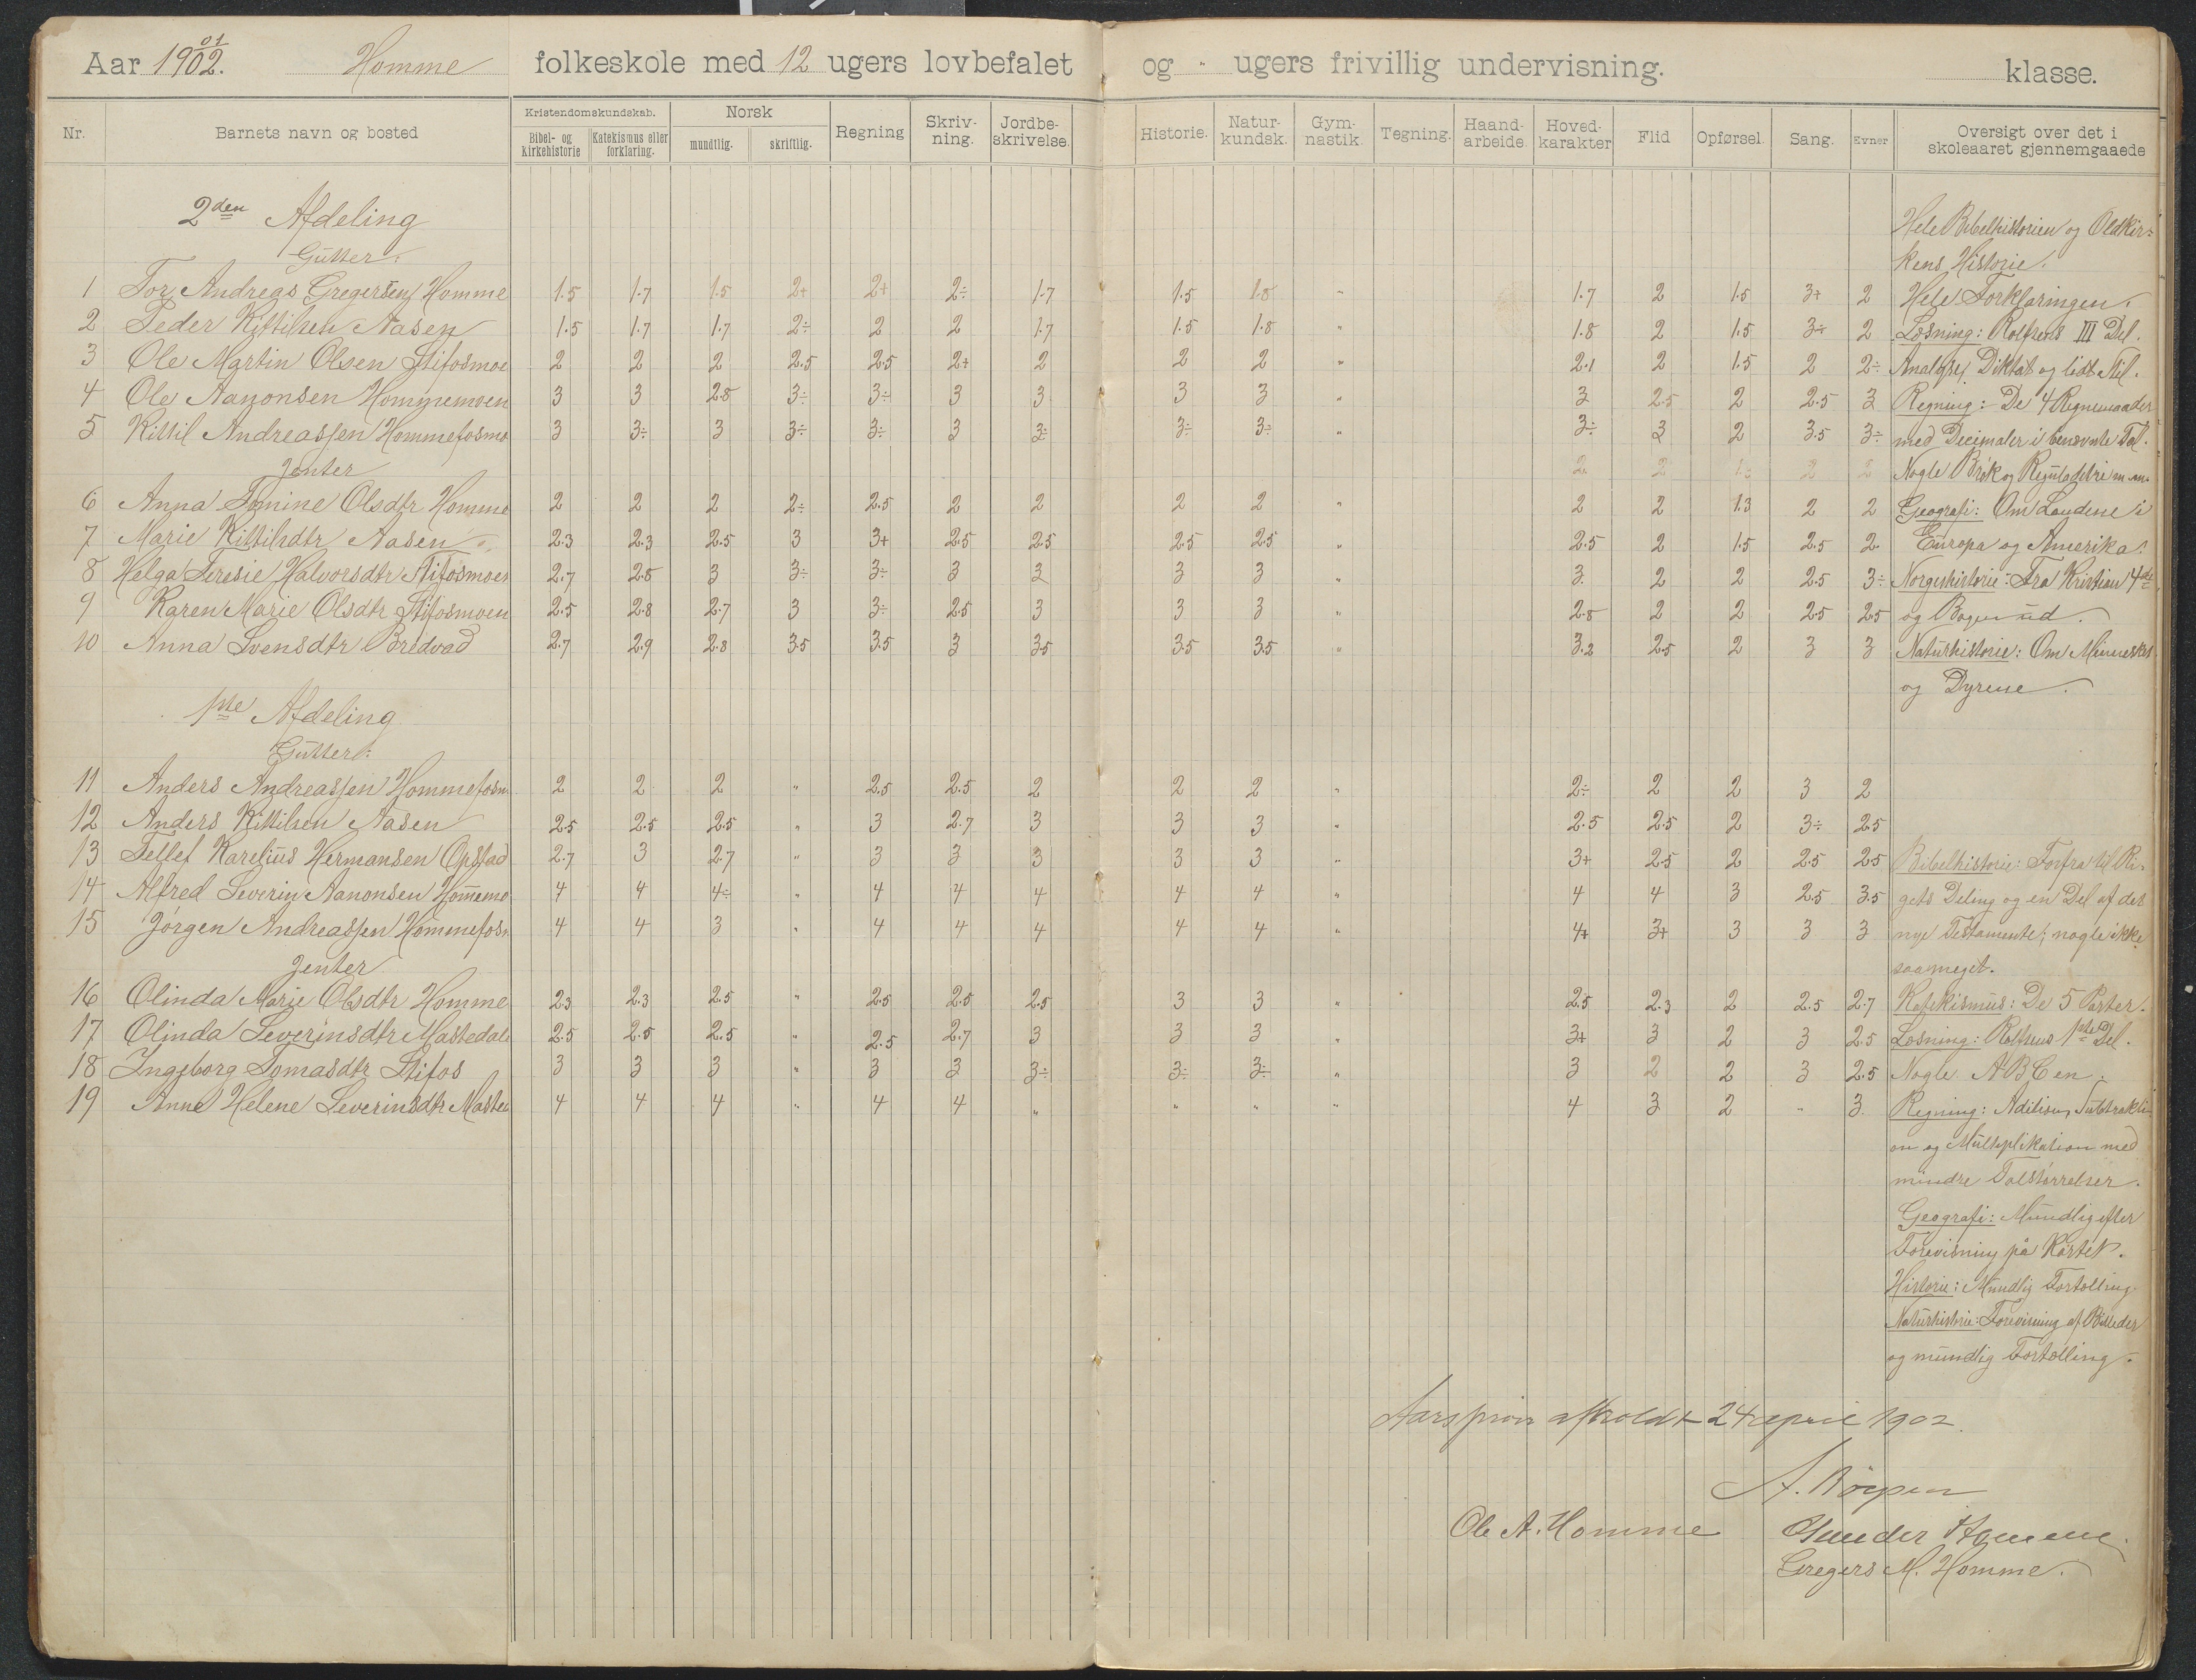 Aar 1902. 01 Homme folkeskole med 12 ugers lovbefalet og " ugers frivillig undervisning. klasse.
Nr. Barnets navn og bosted Kristendomskundskab. Bibel- og kirkehistorie Katekismus eller forklaring. Norsk mundtlig. skriftlig. Regning Skriv-ning. Jordbe-skrivelse. Historie. Natur-kundsk. Gym-nastik. Tegning. Haand-arbeide. Hoved-karakter Flid Opførsel. Sang. Evner Oversigt over det i skoleaaret gjennemgaaede
2den Afdeling
Hele Bibelhistorien og Oldkir=
Gutter:
kens Historie.
1 Tor Andreas Gregersen Homme 1.5 1.7 1.5 2+ 2+ 2÷ 1.7 1.5 1.8 " 1.7 2 1.5 3+ 2 Hele Forklaringen.
2 Peder Kittilsen Aasen 1.5 1.7 1.7 2÷ 2 2 1.7 1.5 1.8 " 1.8 2 1.5 3÷ 2 Læsning: Rolfsens III Del.
3 Ole Martin Olsen Stifosmoe 2 2 2 2.5 2.5 2+ 2 2 2 " 2.1 2 1.5 2 2÷ Analyse, Diktat og lidt Stil.
4 Ole Aanonsen Hommemoen 3 3 2.8 3÷ 3÷ 3 3 3 3 " 3 2.5 2 2.5 3 Regning: De 4 Regnemaader
5 Kittil Andreassen Hommefosmo 3 3÷ 3 3÷ 3÷ 3 3÷ 3÷ 3÷ " 3÷ 3 2 3.5 3÷ med Decimaler i benævnte Tal.
Jenter
Nogle Brøk og Reguladetri m.m.
6 Anna Tomine Olsdtr Homme 2 2 2 2÷ 2.5 2 2 2 2 " 2 2 1.3 2 2 Geografi: Om Landene i
7 Marie Kittilsdtr Aasen 2.3 2.3 2.5 3 3+ 2.5 2.5 2.5 2.5 " 2.5 2 1.5 2.5 2. Europa og Amerika.
8 Helga Teresie Halvorsdtr Stifosmoen 2.7 2.8 3 3÷ 3÷ 3 3 3 3 " 3. 2 2 2.5 3÷ Norgeshistorie: Fra Kristian 4de
9 Karen Marie Olsdtr Stifosmoen 2.5 2.8 2.7 3 3÷ 2.5 3 3 3 " 2.8 2 2 2.5 2.5 og Bogen ud.
10 Anna Svensdtr Bredvad 2.7 2.9 2.8 3.5 3.5 3 3.5 3.5 3.5 " 3.2 2.5 2 3 3 Naturhistorie: Om Mennesket
og Dyrene.
1ste Afdeling
Gutter:
11 Anders Andreassen Hommefosm 2 2 2 " 2.5 2.5 2 2 2 " 2÷ 2 2 3 2
12 Anders Kittilsen Aasen 2.5 2.5 2.5 " 3 2.7 3 3 3 " 2.5 2.5 2 3÷ 2.5
13 Tellef Karelius Hermansen Opstad 2.7 3 2.7 " 3 3 3 3 3 " 3+ 2.5 2 2.5 2.5 Bibelhistorie: Forfra til Ri-
14 Alfred Severin Aanonsen Hommemo 4 4 4÷ " 4 4 4 4 4 " 4 4 3 2.5 3.5 gets Deling og en Del af det
15 Jørgen Andreassen Hommefosm 4 4 3 " 4 4 4 4 4 " 4+ 3+ 3 3 3 nye Testamente; nogle ikke
Jenter
saa meget.
16 Olinda Marie Olsdtr Homme 2.3 2.3 2.5 " 2.5 2.5 2.5 3 3 " 2.5 2.3 2 2.5 2.7 Katekismus: De 5 Parter.
17 Olinda Severinsdtr Mastedal 2.5 2.5 2.5 " 2.5 2.7 3 3 3 " 3+ 3 2 3 2.5 Læsning: Rolfsens 1ste Del.
18 Ingeborg Tomasdtr Stifos 3 3 3 " 3 3 3÷ 3÷ 3÷ " 3 2 2 3 2.5 Nogle ABCen.
19 Anne Helene Severinsdtr Masted 4 4 4 " 4 4 " " " " 4 3 2 " 3. Regning: Adition, Subtrakti-
on og Multiplikation med
mindre Talstørrelser.
Geografi: Mundlig efter
Forevisning på Kartet.
Historie: Mundlig Fortælling.
Naturhistorie: Forevisning af Billeder
og mundlig Fortælling.
Aarsprøve afholdt 24 april 1902.
Ole A. Homme
Gregers M. Homme.